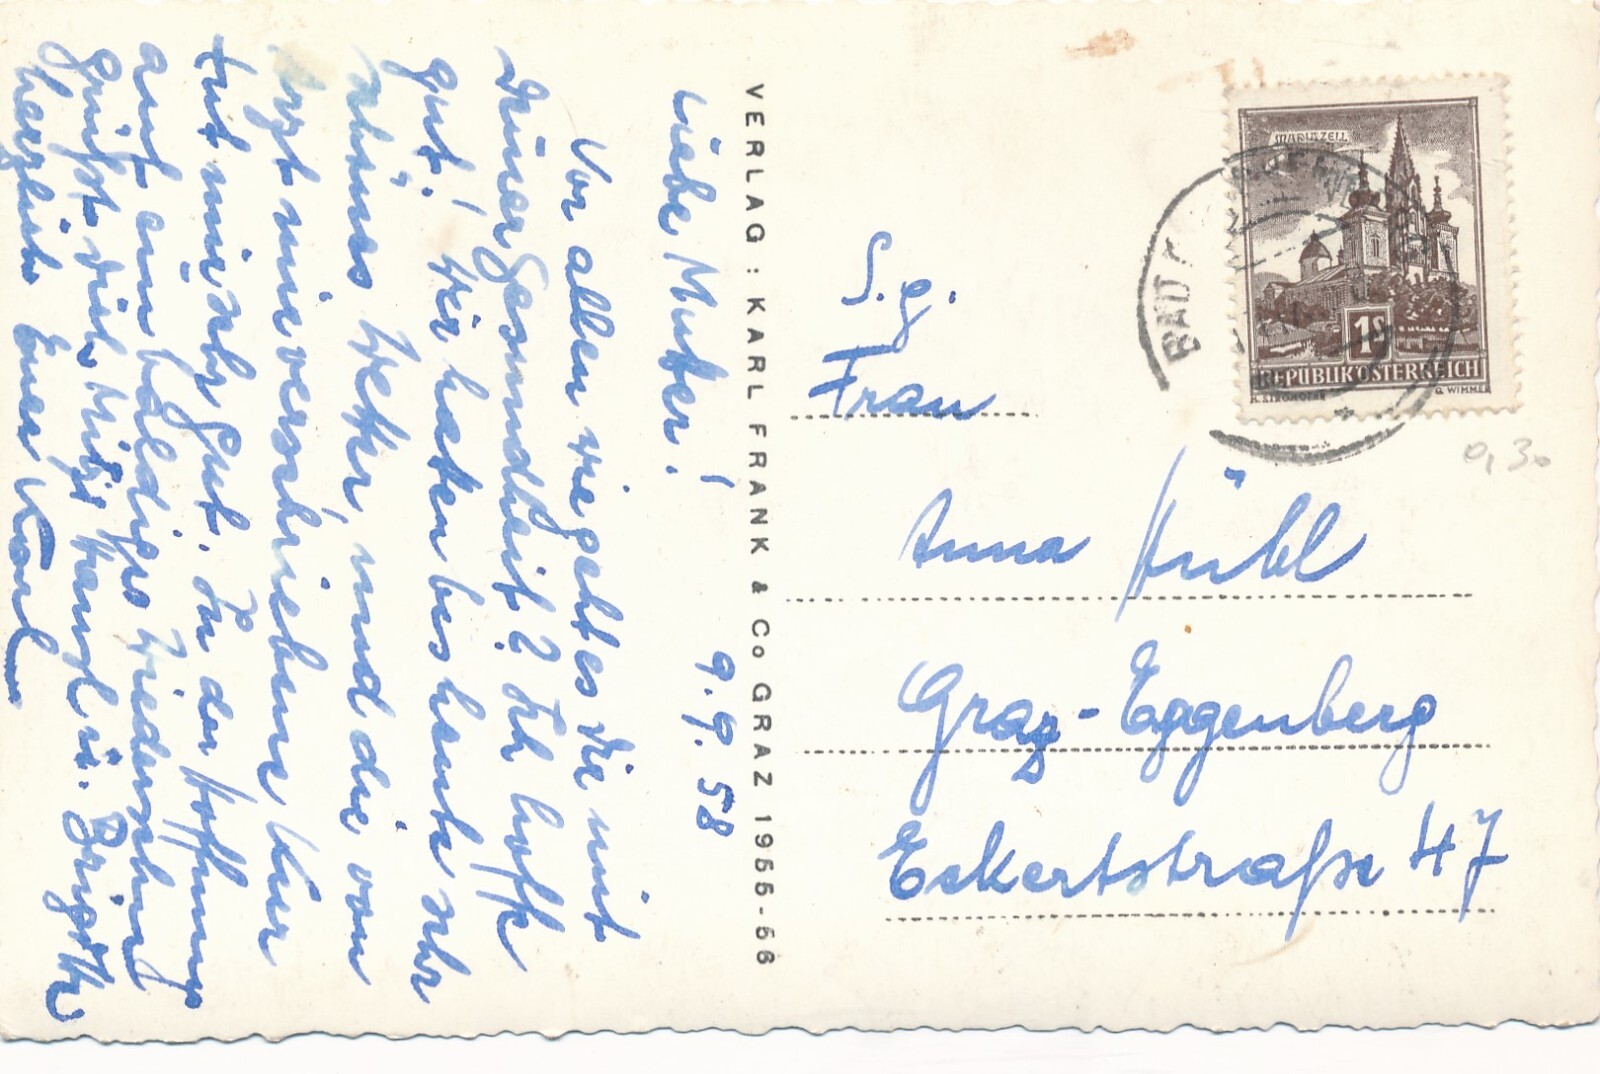 9.9.58
Liebe Mutter!
Vor allem wie geht es Dir mit
Deiner Gesundheit? Ich hoffe
gut. Wir hatten bis heute sehr
schönes Wetter, und die vom
Arzt mir verschriebene Kur
tut mir sehr gut. In der Hoffnung
auf ein baldiges Wiedersehen
grüßt Dich, Mitzi Hansl u. Brigitte
herzlich Euer Karl
VERLAG: KARL FRANK & Co GRAZ 1955-56
S.g.
Frau
Anna Hübl
Graz-Eggenberg
Eckertstraße 47
MARIAZELL
1S
REPUBLIK ÖSTERREICH
G. WIMMER
BAD
0,30